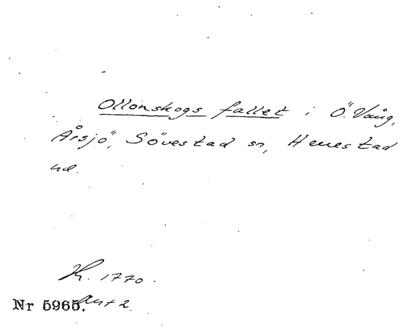 Ollonskogs fallet i Ö. Vång,
Årsjö, Sövestad sn, Herrestad
hd.
K. 1770.
Nr 5965. Akt 2.